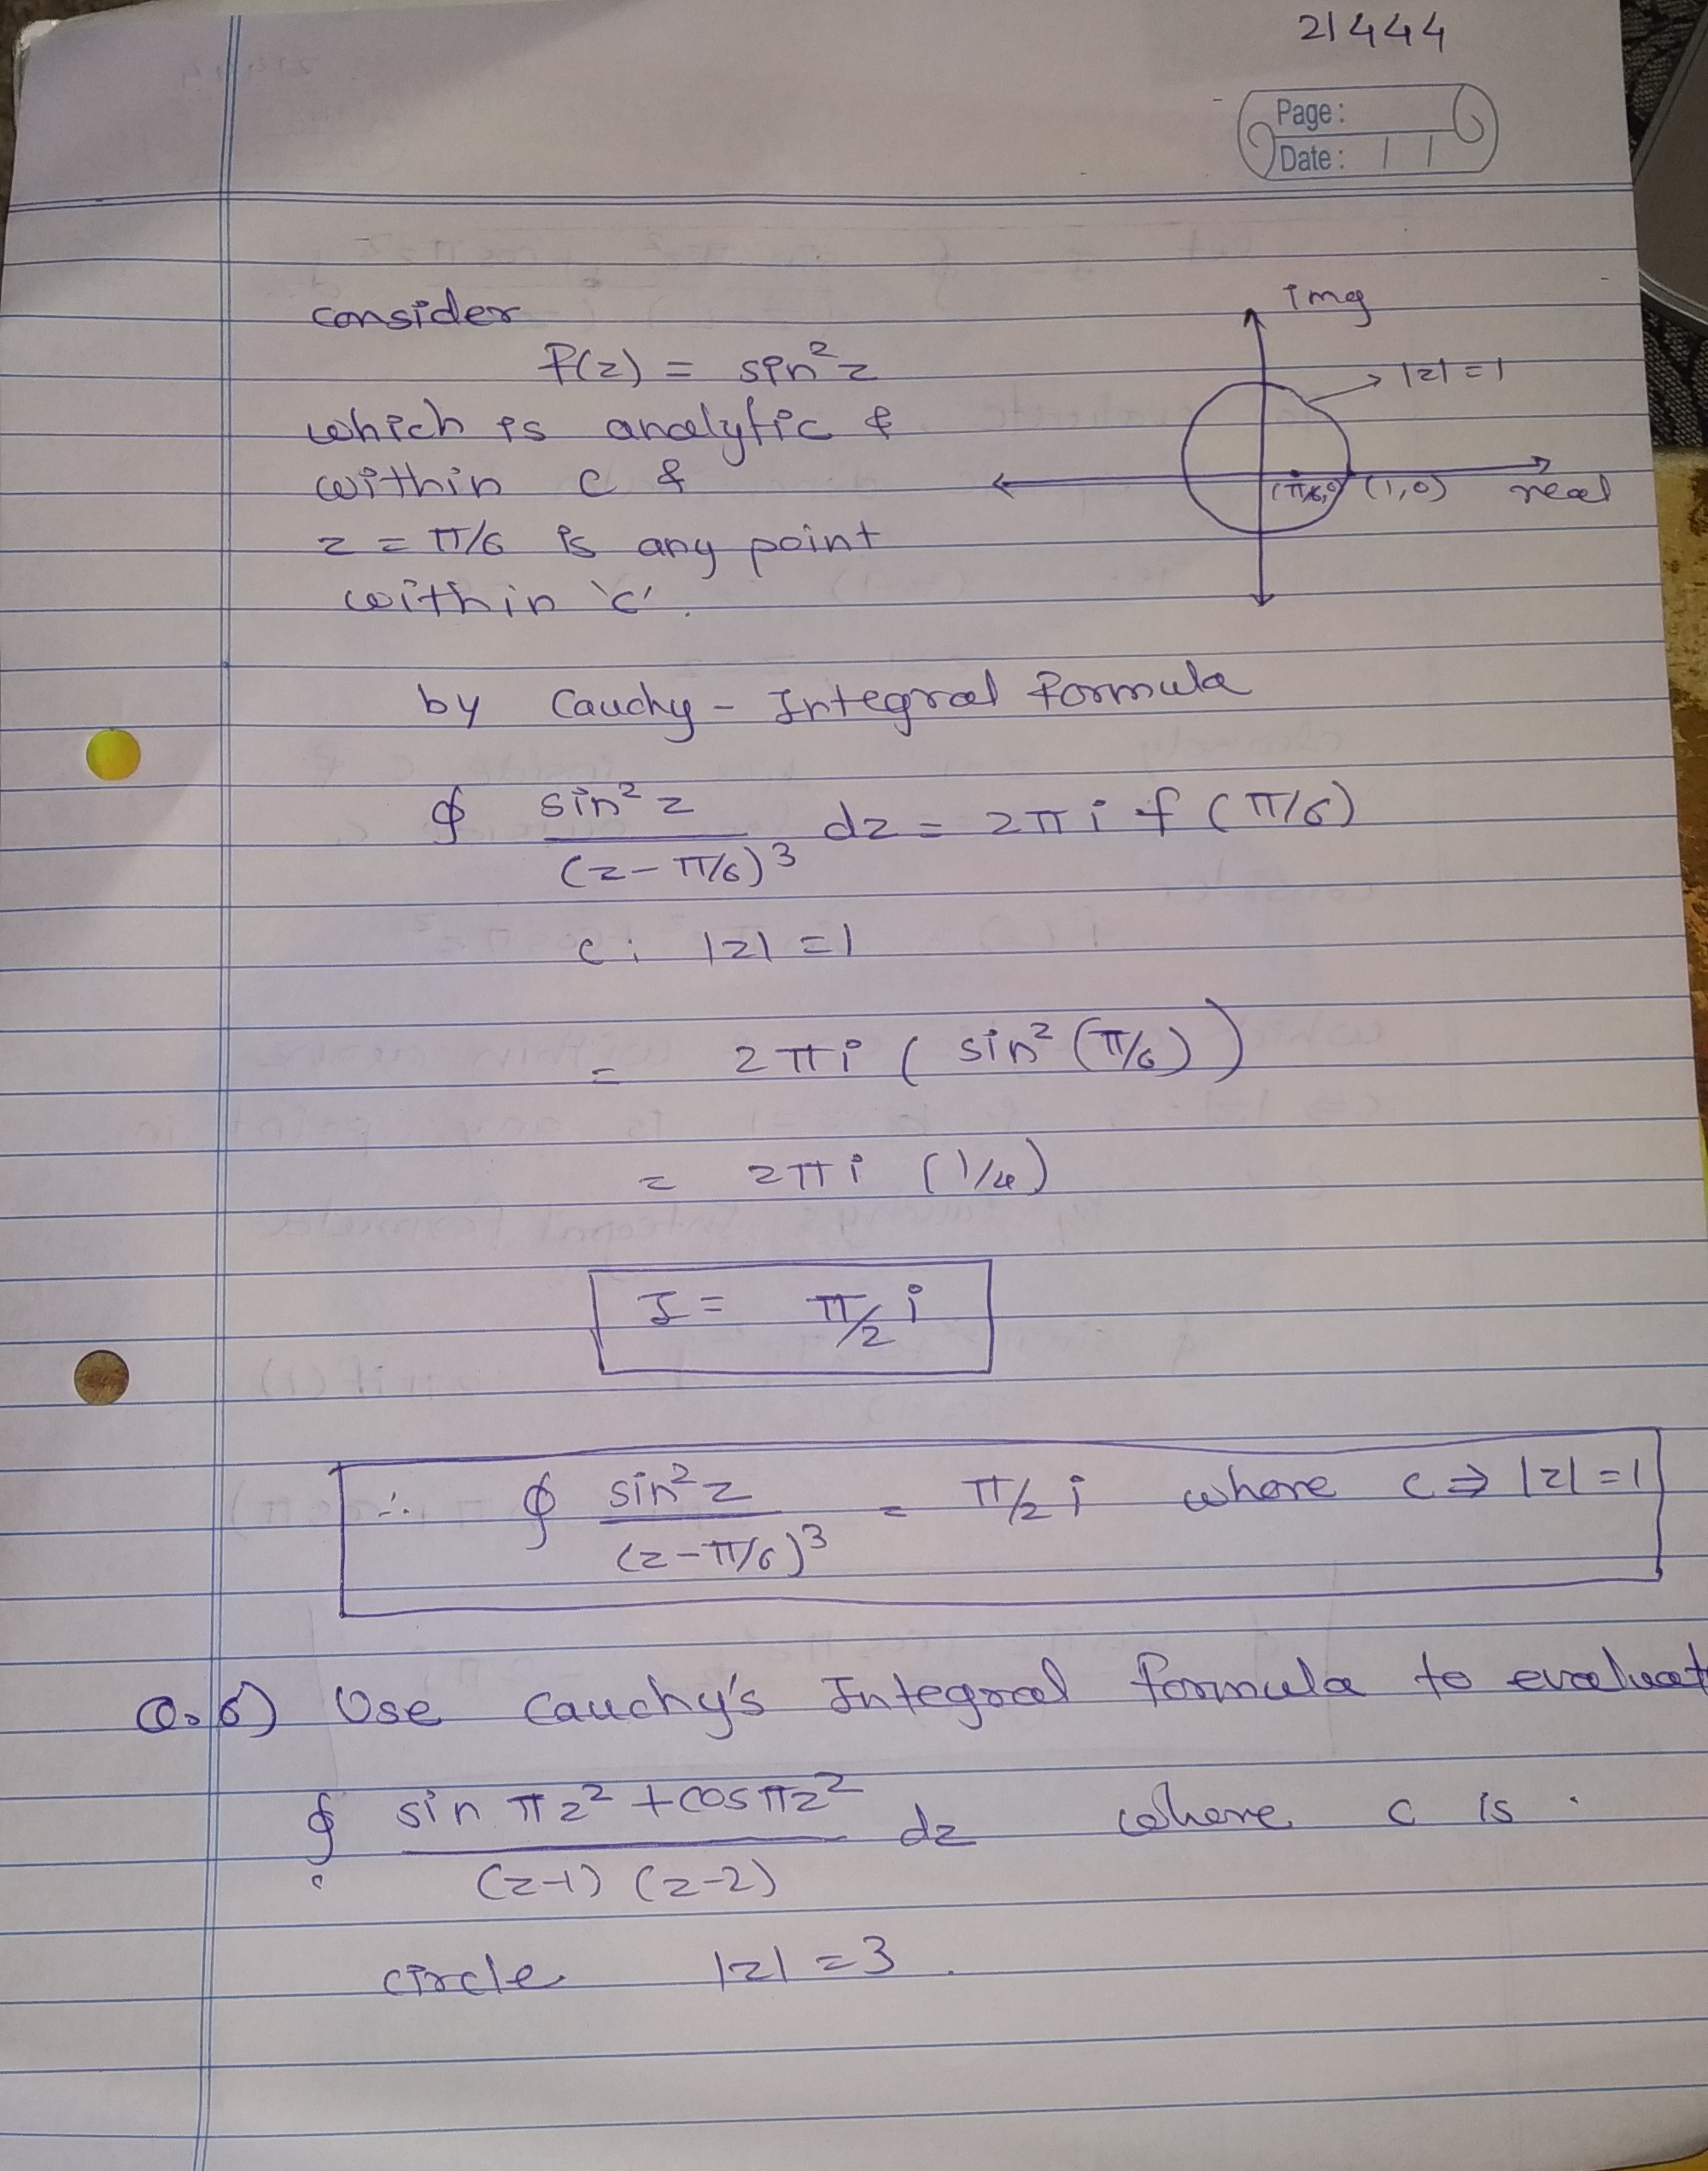 21444
Page:
Date: / /
img
consider
f(z) = sin²z
|z|=1
which is analytic &
within c &
(π/6,0) (1,0) real
z = π/6 is any point
within 'c'.
by Cauchy - Integral formula
∮ sin²z / (z-π/6)³ dz = 2πi f(π/6)
c: |z|=1
= 2πi ( sin²(π/6))
= 2πi (1/4)
I = π/2 i
∴ ∮ sin²z / (z-π/6)³ = π/2 i where c ⇒ |z|=1
Q.6) Use Cauchy's Integral formula to evaluat
∮c sin πz² + cos πz² / (z-1) (z-2) dz where c is
circle |z| = 3.